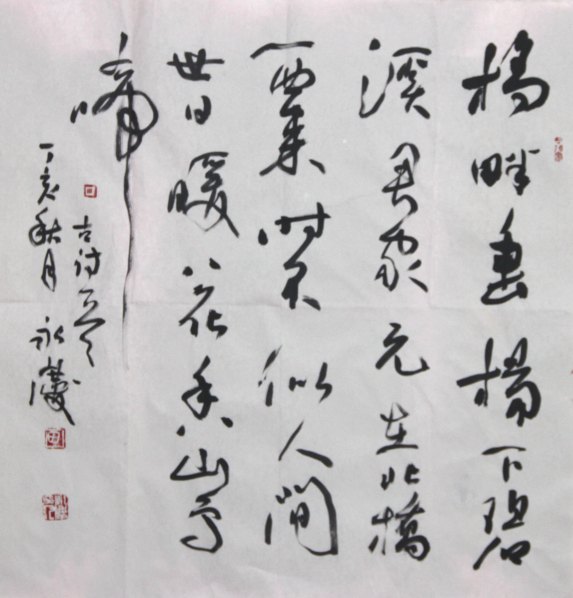 橋畔垂楊下碧
溪君家元在北橋
西來时不似人間
世日暖花香山鸟
啼
古诗一首
丁亥秋月 永慶